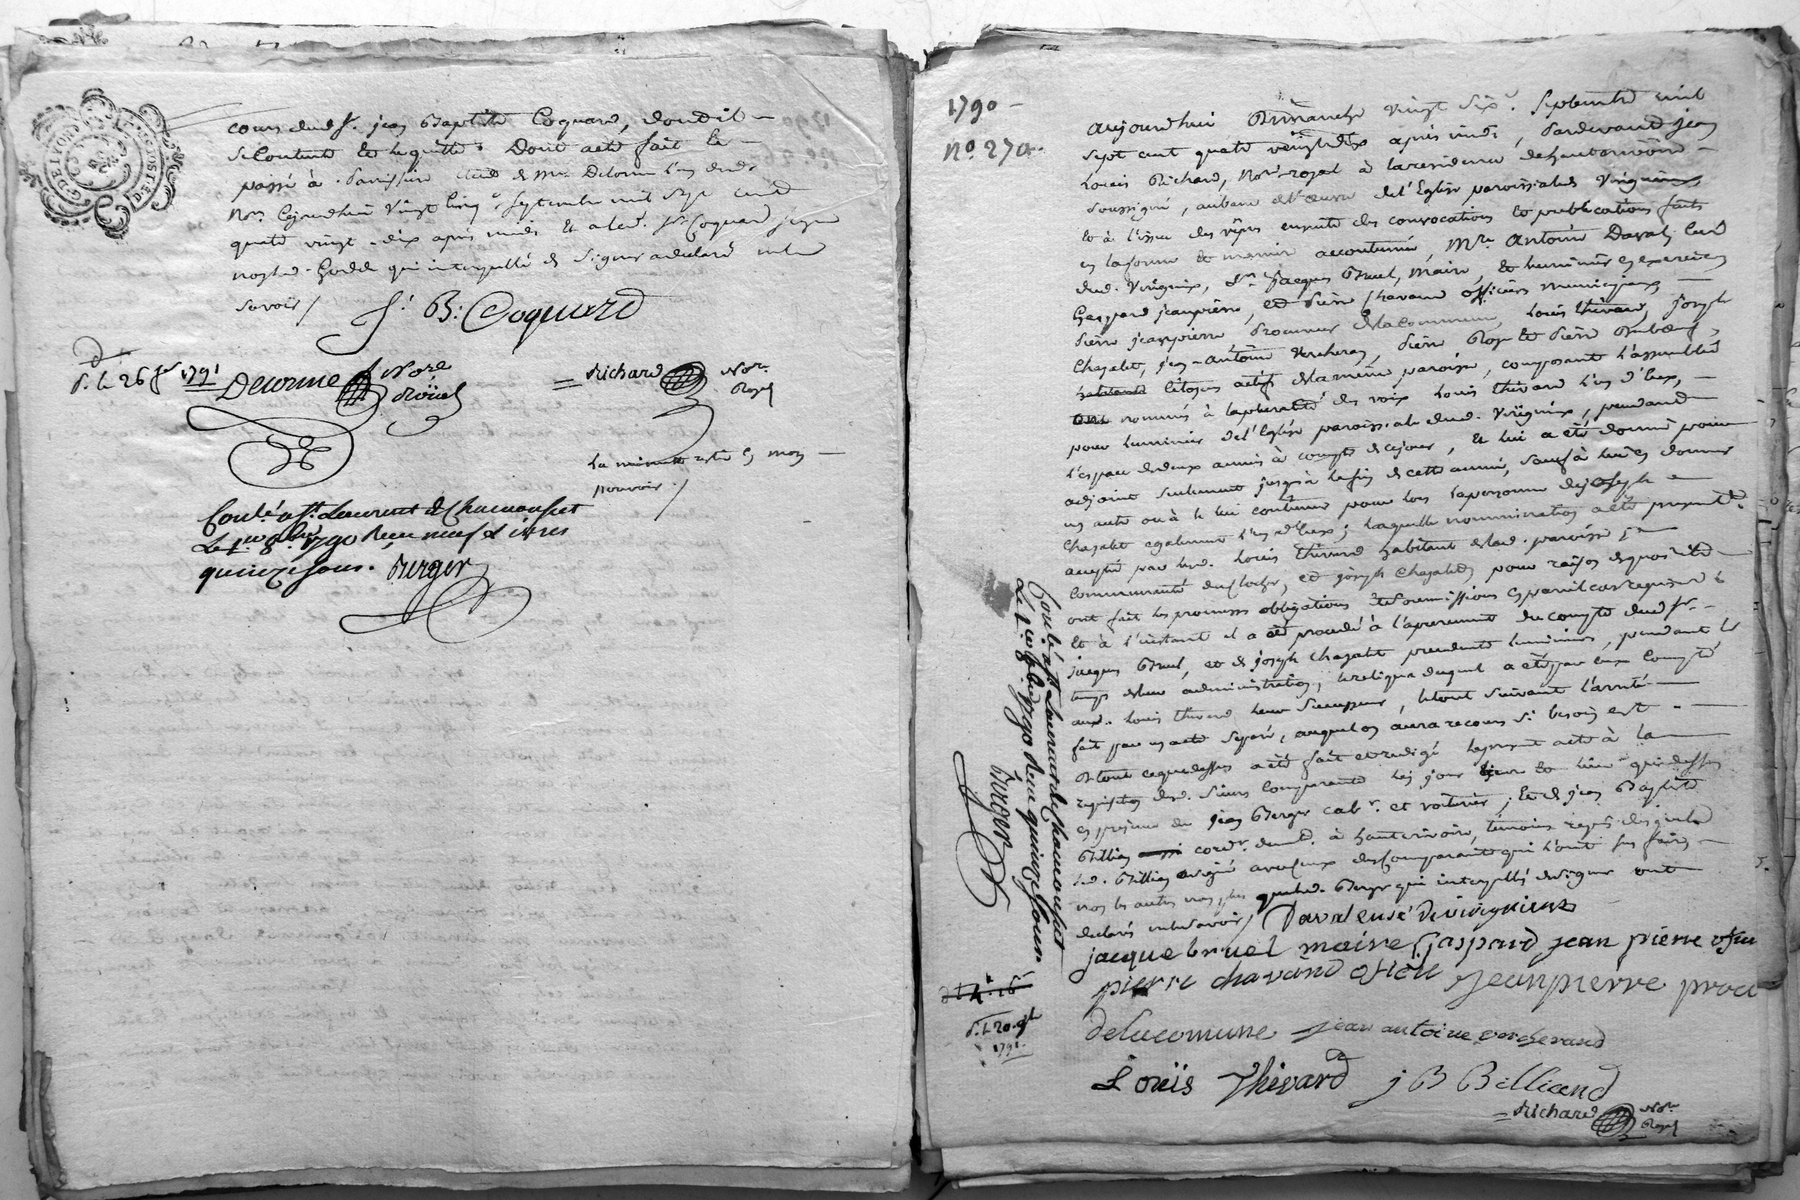 cours dud. Sr. jean Baptiste Coquard, dont il
se Contente et le quitte. Dont acte fait le
passé à
Nre. Cejourdhui Vingt Cinq Septembre mil Sept Cent
quatre vingt-dix après midi Et a led. Sr. Coquard signé
non lad. qui interpellé de Signer a déclaré ne le
savoir /
J. B. Coquard
d. L. 26 1791
Delorme Nore Roïial
= Richard Nore Royal
La minutte reste en mon
pouvoir /
Conlé. a St. Laurent de Chamousset
Le 1er 8bre 1790 Reçu neuf Livres
quinze sous. Berger
1790
No. 270
aujourdhui Dimanche vingt six Septembre mil
sept cent quatre vingt dix après midi, Pardevant Jean
Louis Richard, Nore. royal à la residence de hauterivoire
soussigné, au de l'Eglise paroissiale de Virigneux,
et à l'issue des vêpres ensuite des convocations et publications faites
en la forme et maniere accoutumé, Mre. Antoine Daval, curé
dud. Virigneux, Sr. Jacques Bruel, Maire, et luminier en exercice
Gaspard jeanpierre, et Pierre Chavand officiers municipaux
Pierre jeanpierre Procureur de la Commune, Louis thivard, joseph
Chazalet, jean-Antoine Vercherand, Pierre et Pierre
habitants Citoyens actifs de la même paroisse, composant l'assemblée
ont nommés à la pluralité des voix Louis thivard l'un d'eux,
pour luminier de l'Eglise paroissiale dud. Virigneux, pendant
l'espace de deux années à compter de ce jour, Et lui a été donné pour
adjoint seulement jusqu'à la fin de cette année, sauf à lui en donner
un autre ou à le lui continuer pour lors la personne de joseph
Chazalet egalement l'un d'eux; laquelle nomination a été présentemt.
accepté par led. Louis thivard habitant de lad. paroisse
Communauté et joseph Chazalet pour raison de quoi ils
ont fait les promesses obligations et soumissions en pareil cas requises
Et à l'instant il a été procédé à l'apurement du compte dud. Sr.
jacques Bruel, et de joseph Chazalet precedents luminiers, pendant le
temps de leur administration, le reliqua duquel a été par eux compté
aud. Louis thivard leur Successeur, le tout suivant l'arrêté
fait par un acte separé, auquel on aura recours si besoin est
De tout ce que dessus a été fait et redigé le present acte à la
requisition desd. Sieurs Comparants les jour et lieu que dessus
en presence de jean Berger cabr. et voiturier, Et de jean Baptiste
Billian cordr. demt. à hauterivoire, témoins requis
led. Billian a signé avec ceux des Comparants qui l'ont su faire
non les autres non plus que led. Berger qui interpellés de signer ont
déclarés ne le savoir / Daval curé de virigneux
jacque bruel maire Gaspard jean pierre
pierre chavand Jeanpierre
de la comune jean antoine vercherand
Louïs Thivard j B Billiand
= Richard Nore. Royal
Conlé. a St. Laurent de Chamousset
Le 1er 8bre 1790 Reçu quinze sous
Berger
d. L. 20 1791